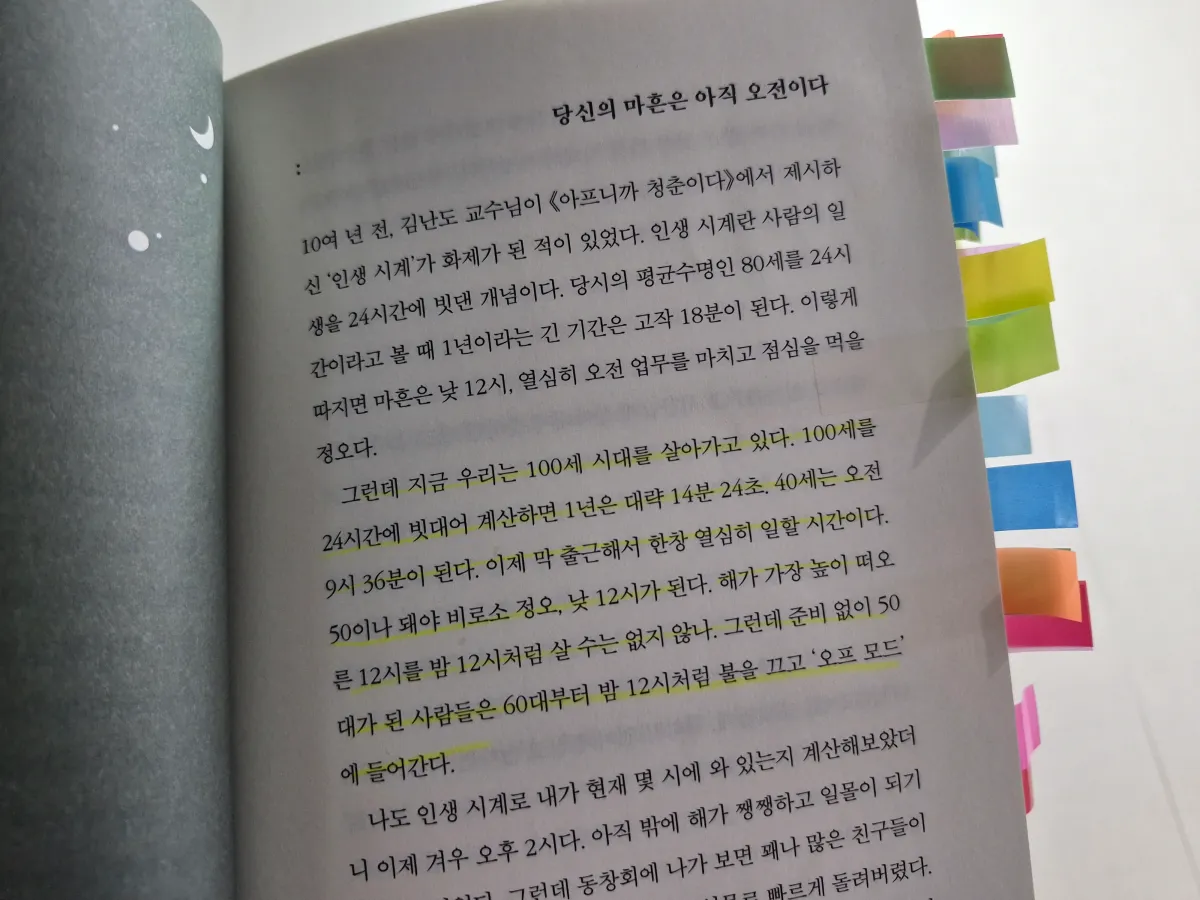 당신의 마흔은 아직 오전이다
:
10여 년 전, 김난도 교수님이 《아프니까 청춘이다》에서 제시하
신 ‘인생 시계’가 화제가 된 적이 있었다. 인생 시계란 사람의 일
생을 24시간에 빗댄 개념이다. 당시의 평균수명인 80세를 24시
간이라고 볼 때 1년이라는 긴 기간은 고작 18분이 된다. 이렇게
따지면 마흔은 낮 12시, 열심히 오전 업무를 마치고 점심을 먹을
정오다.
그런데 지금 우리는 100세 시대를 살아가고 있다. 100세를
24시간에 빗대어 계산하면 1년은 대략 14분 24초. 40세는 오전
9시 36분이 된다. 이제 막 출근해서 한창 열심히 일할 시간이다.
50이나 돼야 비로소 정오, 낮 12시가 된다. 해가 가장 높이 떠오
른 12시를 밤 12시처럼 살 수는 없지 않나. 그런데 준비 없이 50
대가 된 사람들은 60대부터 밤 12시처럼 불을 끄고 ‘오프 모드’
에 들어간다.
나도 인생 시계로 내가 현재 몇 시에 와 있는지 계산해보았더
니 이제 겨우 오후 2시다. 아직 밖에 해가 쨍쨍하고 일몰이 되기
그런데 동창회에 나가 보면 꽤나 많은 친구들이
빠르게 돌려버렸다.